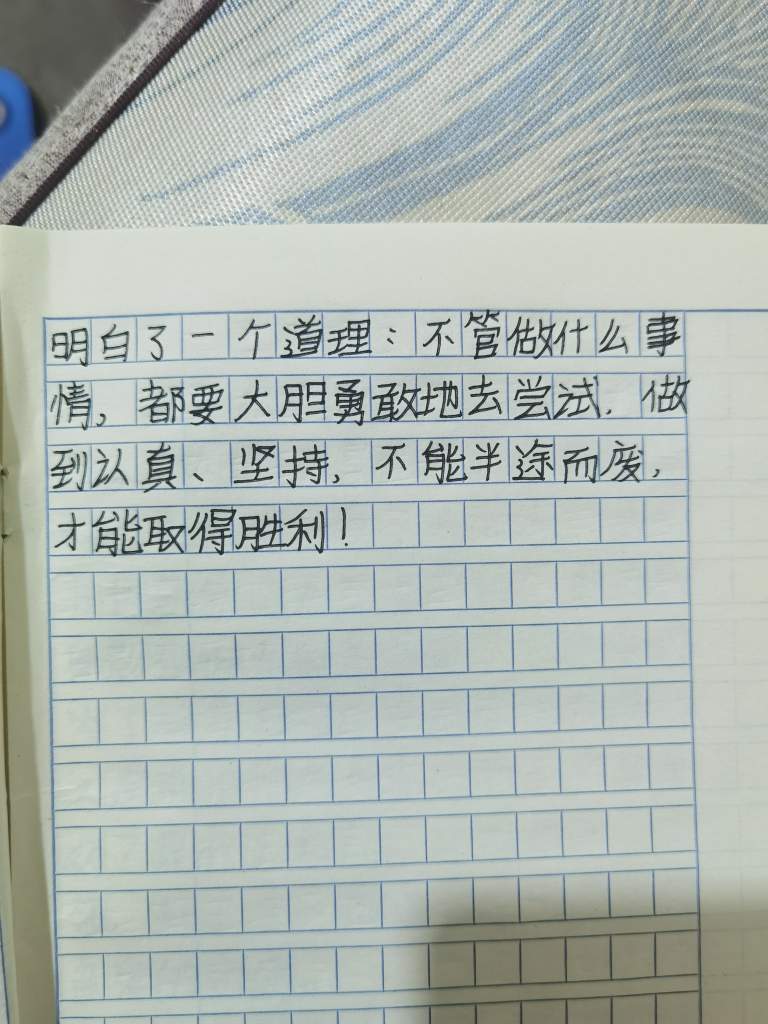 明白了一个道理：不管做什么事
情，都要大胆勇敢地去尝试，做
到认真、坚持，不能半途而废，
才能取得胜利！